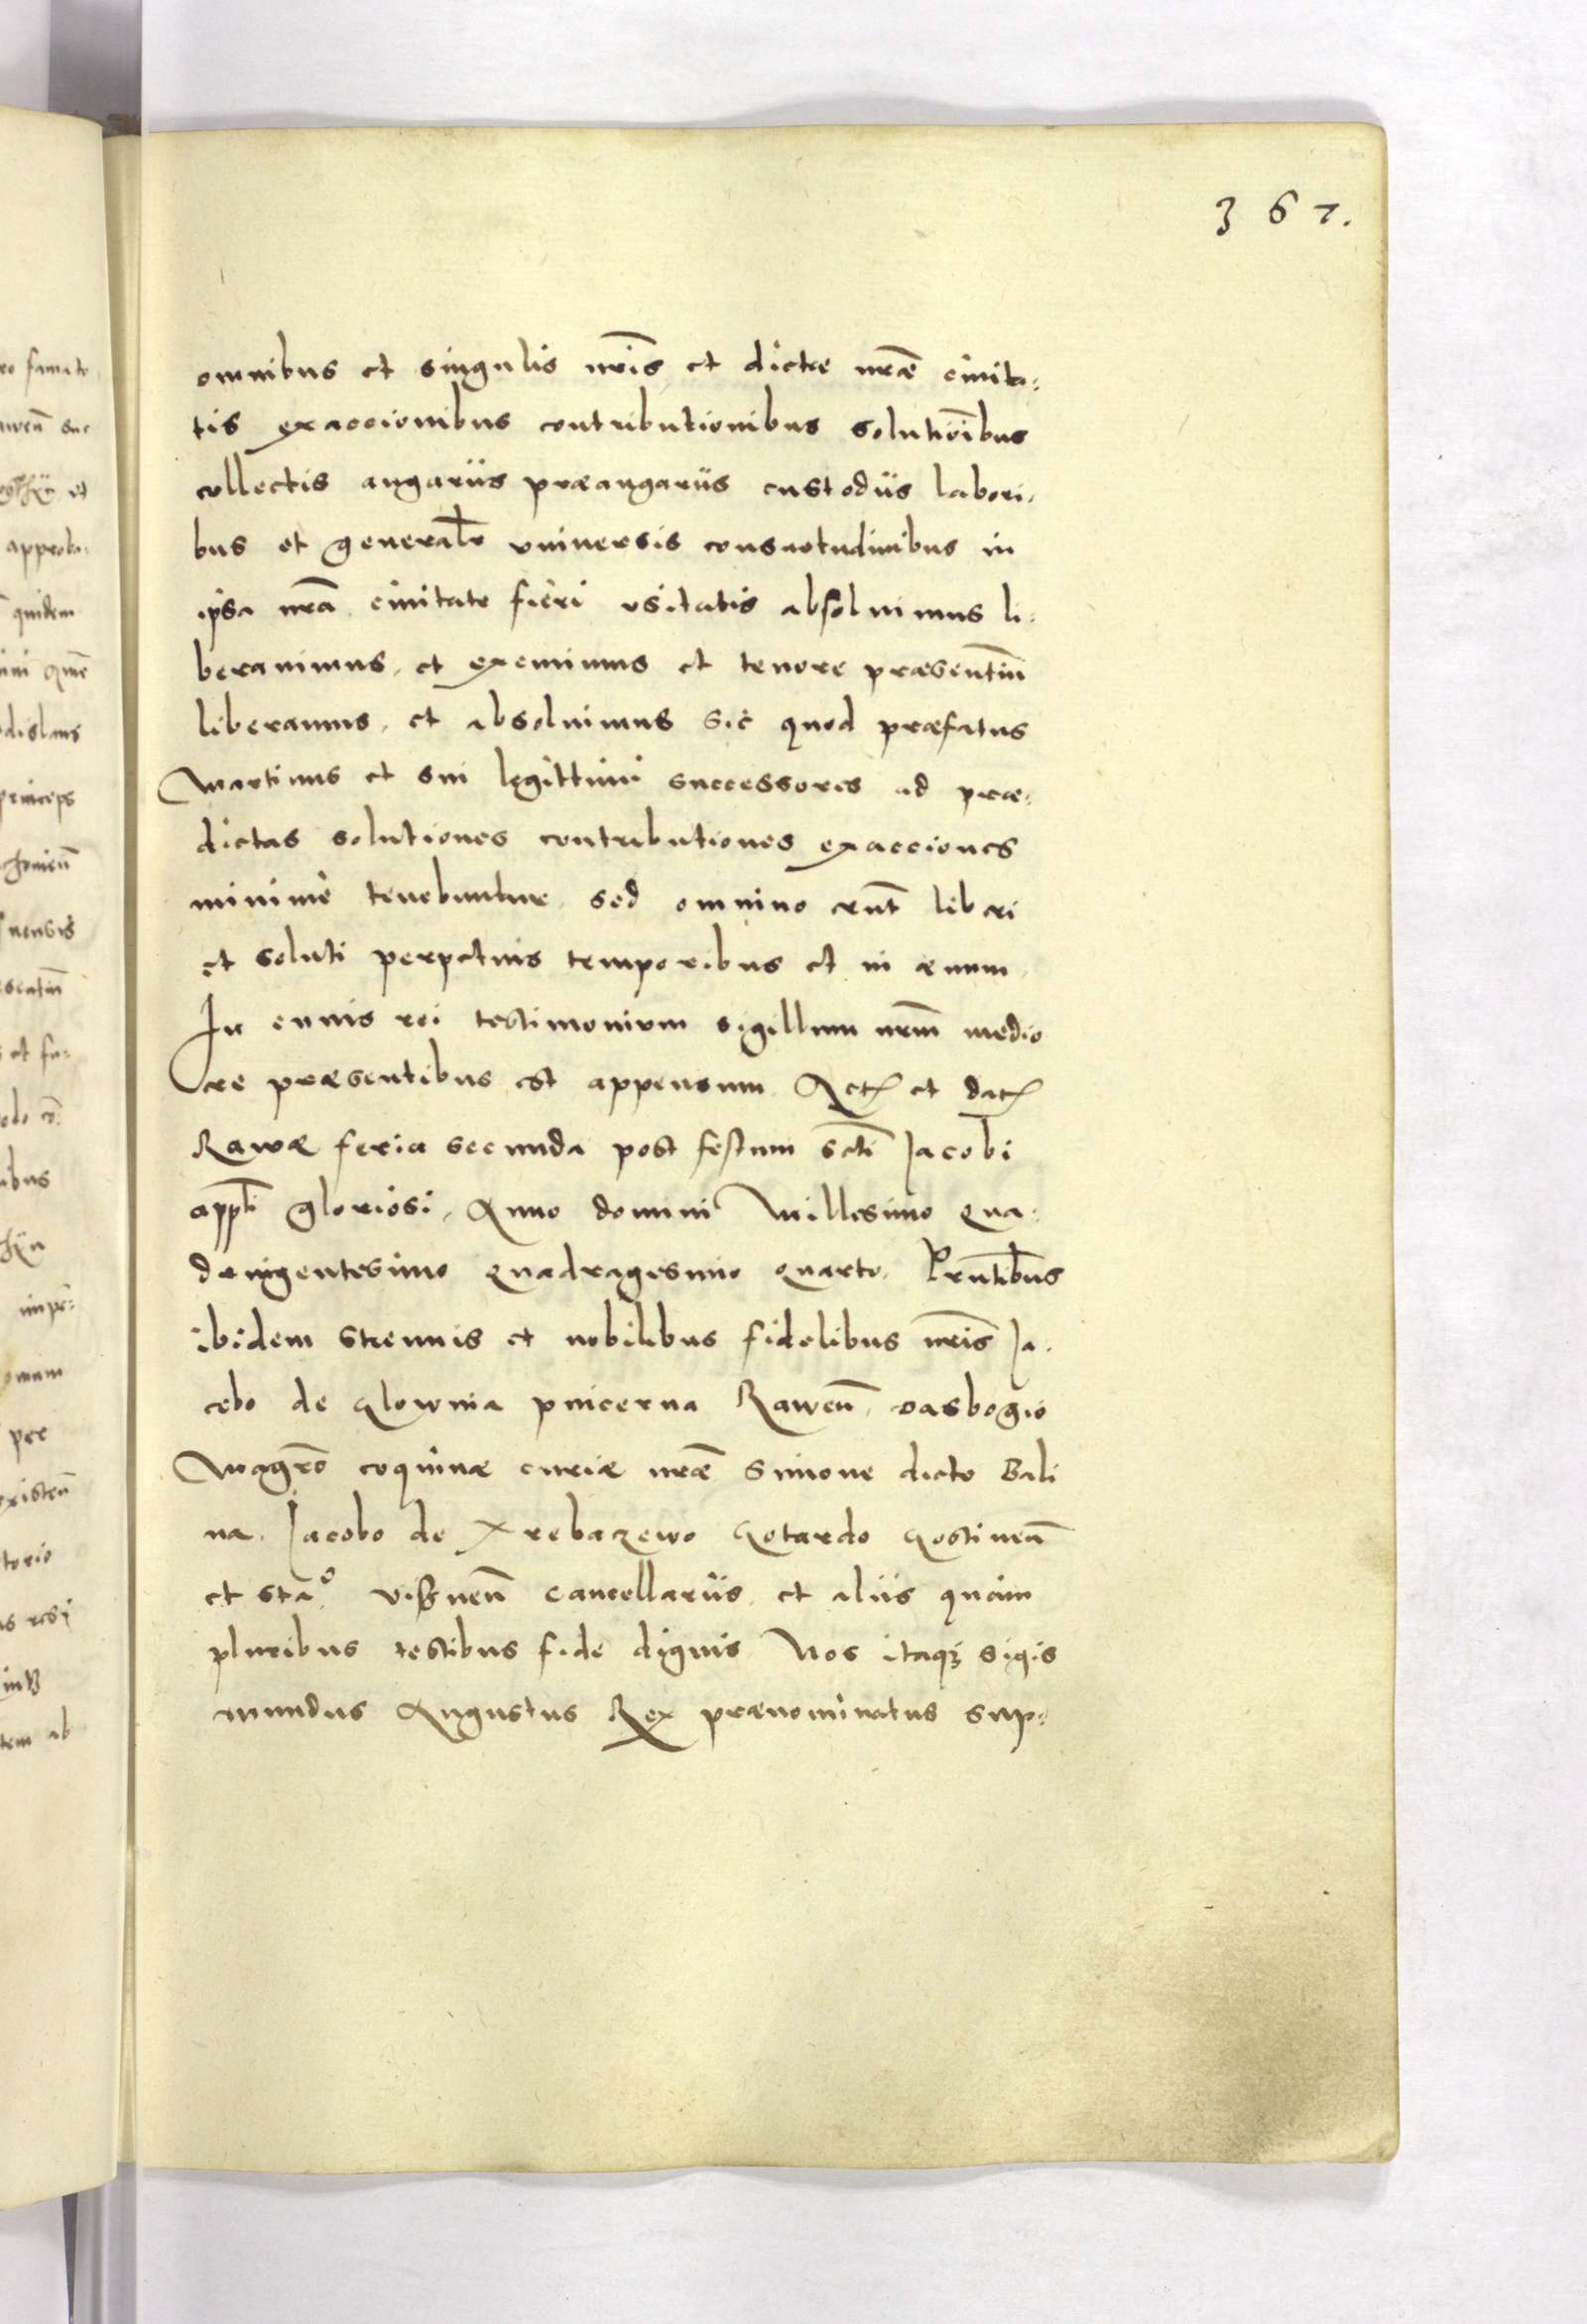 367.
omnibus et singulis nr̃is et dictæ nr̃æ ciuita:
tis exaccionibus contributionibus solution̄ibus
collectis angariis præangariis custodiis labori.
bus et general̃r vniuersis consuetudinibus in
ipsa nr̃a ciuitate fieri vsitatis absoluimus li:
berauimus, et exemimus et tenore præsentiũ
liberamus, et absoluimus sic quod præfatus
Martinus et sui legittimi successores ad præ:
dictas solutiones contributiones exacciones
minime tenebuntur, sed omnino erũt liberi
et soluti perpetuis temporibus et in æuum.
In cuius rei testimonium sigillum nr̃m medio
cre præsentibus est appensum. Act et dat
Rawæ feria secunda post festum s̃cti Jacobi
app̃li gloriosi, Anno domini Millesimo qua:
dringentesimo quadragesimo quarto, Prñtibus
ibidem strenuis et nobilibus fidelibus nr̃is Ja.
cobo de Glownia pincerna Raweñ, Dasbogio
Magr̃o coquinæ curiæ nr̃æ Simone dicto Bali
na, Jacobo de Xrebazewo Gotardo Gostineñ
et sta° visneñ Cancellariis, et aliis quàm
pluribus testibus fide dignis Nos itaqꝫ Sigis
mundus Augustus Rex prænominatus sup:
ro famato
aweñ suc
et
approba:
quidem
dislaus
princeps
nensis
et fu:
ibus
impr̃:
omnem
per
existeñ
torio
tem ab